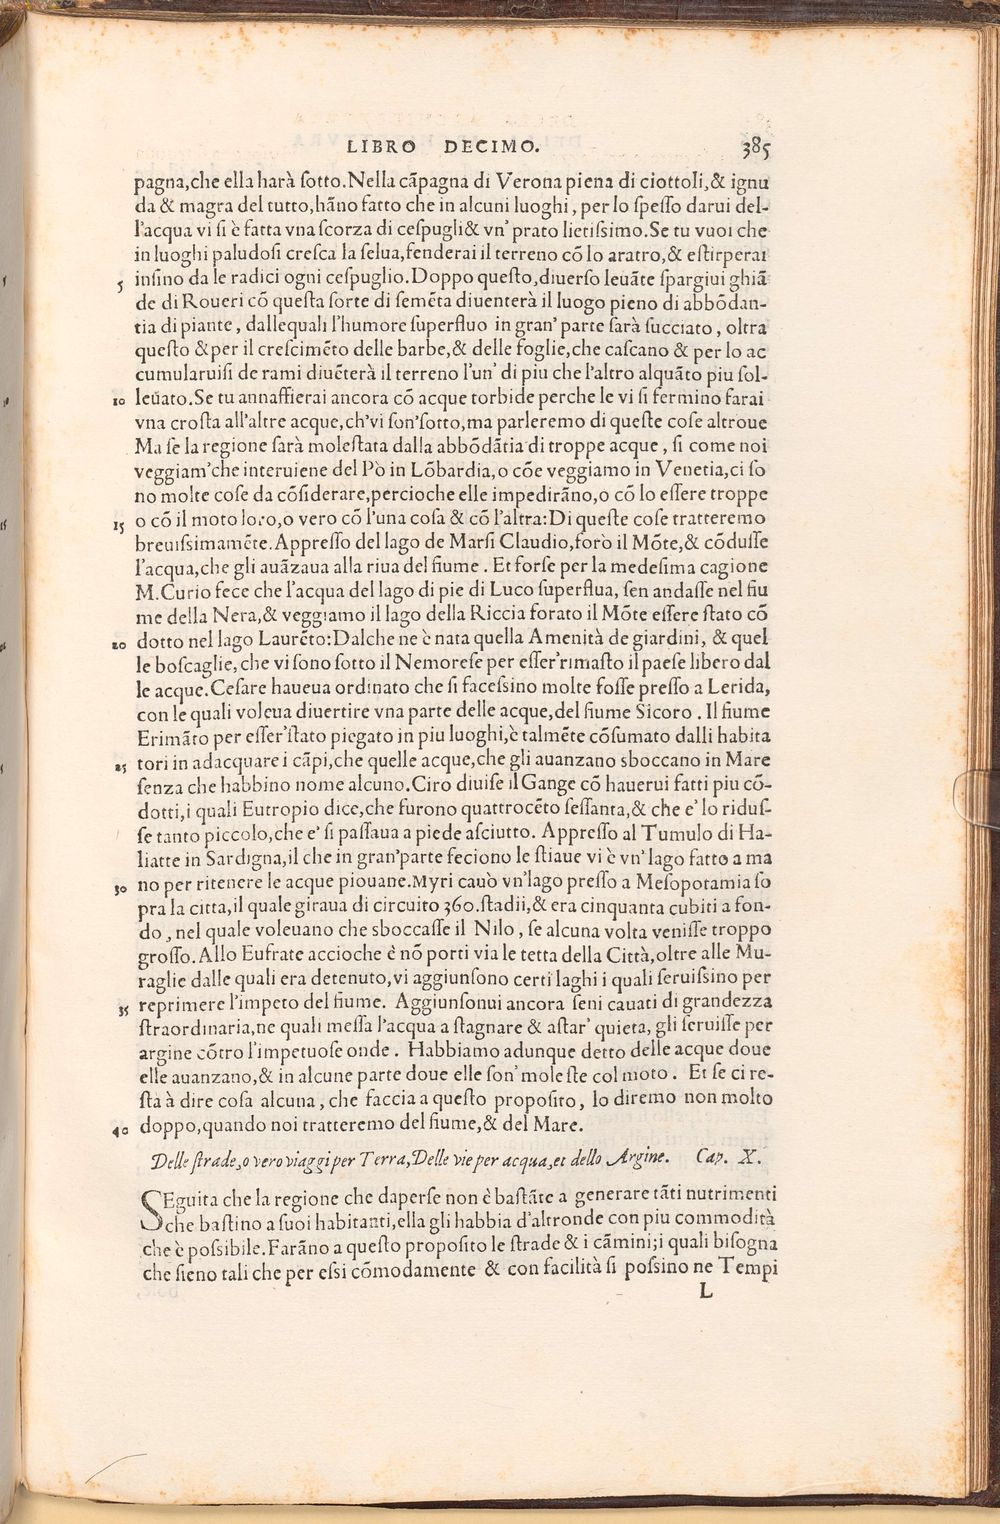 LIBRO DECIMO. 385
pagna,che ella harà ſotto.Nella cãpagna di Verona piena di ciottoli,& ignu
da & magra del tutto,hãno fatto che in alcuni luoghi, per lo ſpeſſo darui del-
l'acqua vi ſi è fatta vna ſcorza di ceſpugli& vn' prato lietiſsimo.Se tu vuoi che
in luoghi paludoſi creſca la ſelua,fenderai il terreno cõ lo aratro,& eſtirperai
5 inſino da le radici ogni ceſpuglio.Doppo queſto,diuerſo leuãte ſpargiui ghiã
de di Roueri cõ queſta ſorte di ſemẽta diuenterà il luogo pieno di abbõdan-
tia di piante, dallequali l'humore ſuperfluo in gran' parte ſarà ſucciato, oltra
queſto &per il creſcimẽto delle barbe,& delle foglie,che caſcano & per lo ac
cumularuiſi de rami diuẽterà il terreno l'un' di piu che l'altro alquãto piu ſol-
10 leuato.Se tu annaffierai ancora cõ acque torbide perche le vi ſi fermino farai
vna croſta all'altre acque,ch'vi ſon'ſotto,ma parleremo di queſte coſe altroue
Ma ſe la regione ſarà moleſtata dalla abbõdãtia di troppe acque, ſi come noi
veggiam'che interuiene del Pò in Lõbardia,o cõe veggiamo in Venetia,ci ſo
no molte coſe da cõſiderare,percioche elle impedirãno,o cõ lo eſſere troppe
15 o cõ il moto loro,o vero cõ l'una coſa & cõ l'altra:Di queſte coſe tratteremo
breuiſsimamẽte.Appreſſo del lago de Marſi Claudio,forò il Mõte,& cõduſſe
l'acqua,che gli auãzaua alla riua del fiume. Et forſe per la medeſima cagione
M.Curio fece che l'acqua del lago di pie di Luco ſuperflua, ſen andaſſe nel fiu
me della Nera,& veggiamo il lago della Riccia forato il Mõte eſſere ſtato cõ
20 dotto nel lago Laurẽto:Dalche ne è nata quella Amenità de giardini, & quel
le boſcaglie, che vi ſono ſotto il Nemoreſe per eſſer'rimaſto il paeſe libero dal
le acque.Ceſare haueua ordinato che ſi faceſsino molte foſſe preſſo a Lerida,
con le quali voleua diuertire vna parte delle acque,del fiume Sicoro. Il fiume
Erimãto per eſſer'ſtato piegato in piu luoghi,è talmẽte cõſumato dalli habita
25 tori in adacquare i cãpi,che quelle acque,che gli auanzano sboccano in Mare
ſenza che habbino nome alcuno.Ciro diuiſe il Gange cõ hauerui fatti piu cõ-
dotti,i quali Eutropio dice,che furono quattrocẽto ſeſſanta,& che e' lo riduſ-
ſe tanto piccolo,che e' ſi paſſaua a piede aſciutto. Appreſſo al Tumulo di Ha-
liatte in Sardigna,il che in gran'parte feciono le ſtiaue vi è vn' lago fatto a ma
30 no per ritenere le acque piouane.Myri cauò vn'lago preſſo a Meſopotamia ſo
pra la citta,il quale giraua di circuito 360.ſtadii,& era cinquanta cubiti a fon-
do, nel quale voleuano che sboccaſſe il Nilo, ſe alcuna volta veniſſe troppo
groſſo.Allo Eufrate accioche è nõ porti via le tetta della Città,oltre alle Mu-
raglie dalle quali era detenuto,vi aggiunſono certi laghi i quali ſeruiſsino per
35 reprimere l'impeto del fiume. Aggiunſonui ancora ſeni cauati di grandezza
ſtraordinaria,ne quali meſſa l'acqua a ſtagnare & aſtar' quieta, gli ſeruiſſe per
argine cõtro l'impetuoſe onde. Habbiamo adunque detto delle acque doue
elle auanzano,& in alcune parte doue elle ſon' moleſte col moto. Et ſe ci re-
ſta à dire coſa alcuna, che faccia a queſto propoſito, lo diremo non molto
40 doppo,quando noi tratteremo del fiume,& del Mare.
Delle ſtrade,o vero viaggi per Terra,Delle vie per acqua,et dello Argine. Cap. X.
SEguita che la regione che daperſe non è baſtãte a generare tãti nutrimenti
che baſtino a ſuoi habitanti,ella gli habbia d'altronde con piu commodità
che è poſsibile.Farãno a queſto propoſito le ſtrade & i cãmini;i quali biſogna
che ſieno tali che per eſsi cõmodamente & con facilità ſi poſsino ne Tempi
L